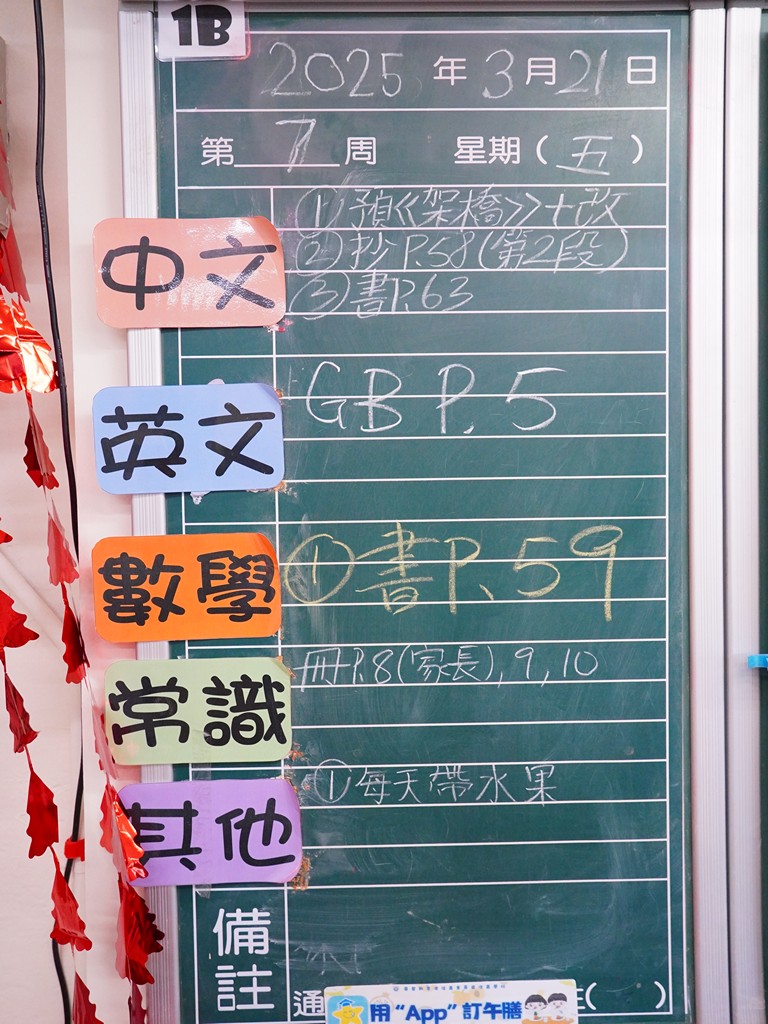 1B
2025 年 3 月 21 日
第 7 周 星期(五)
中文
①預《架橋》+改
②抄P.58(第2段)
③書P.63
英文
GB P.5
數學
①書P.59
常識
冊P.8(家長),9,10
其他
①每天帶水果
備註
通
( )
用“App”訂午膳